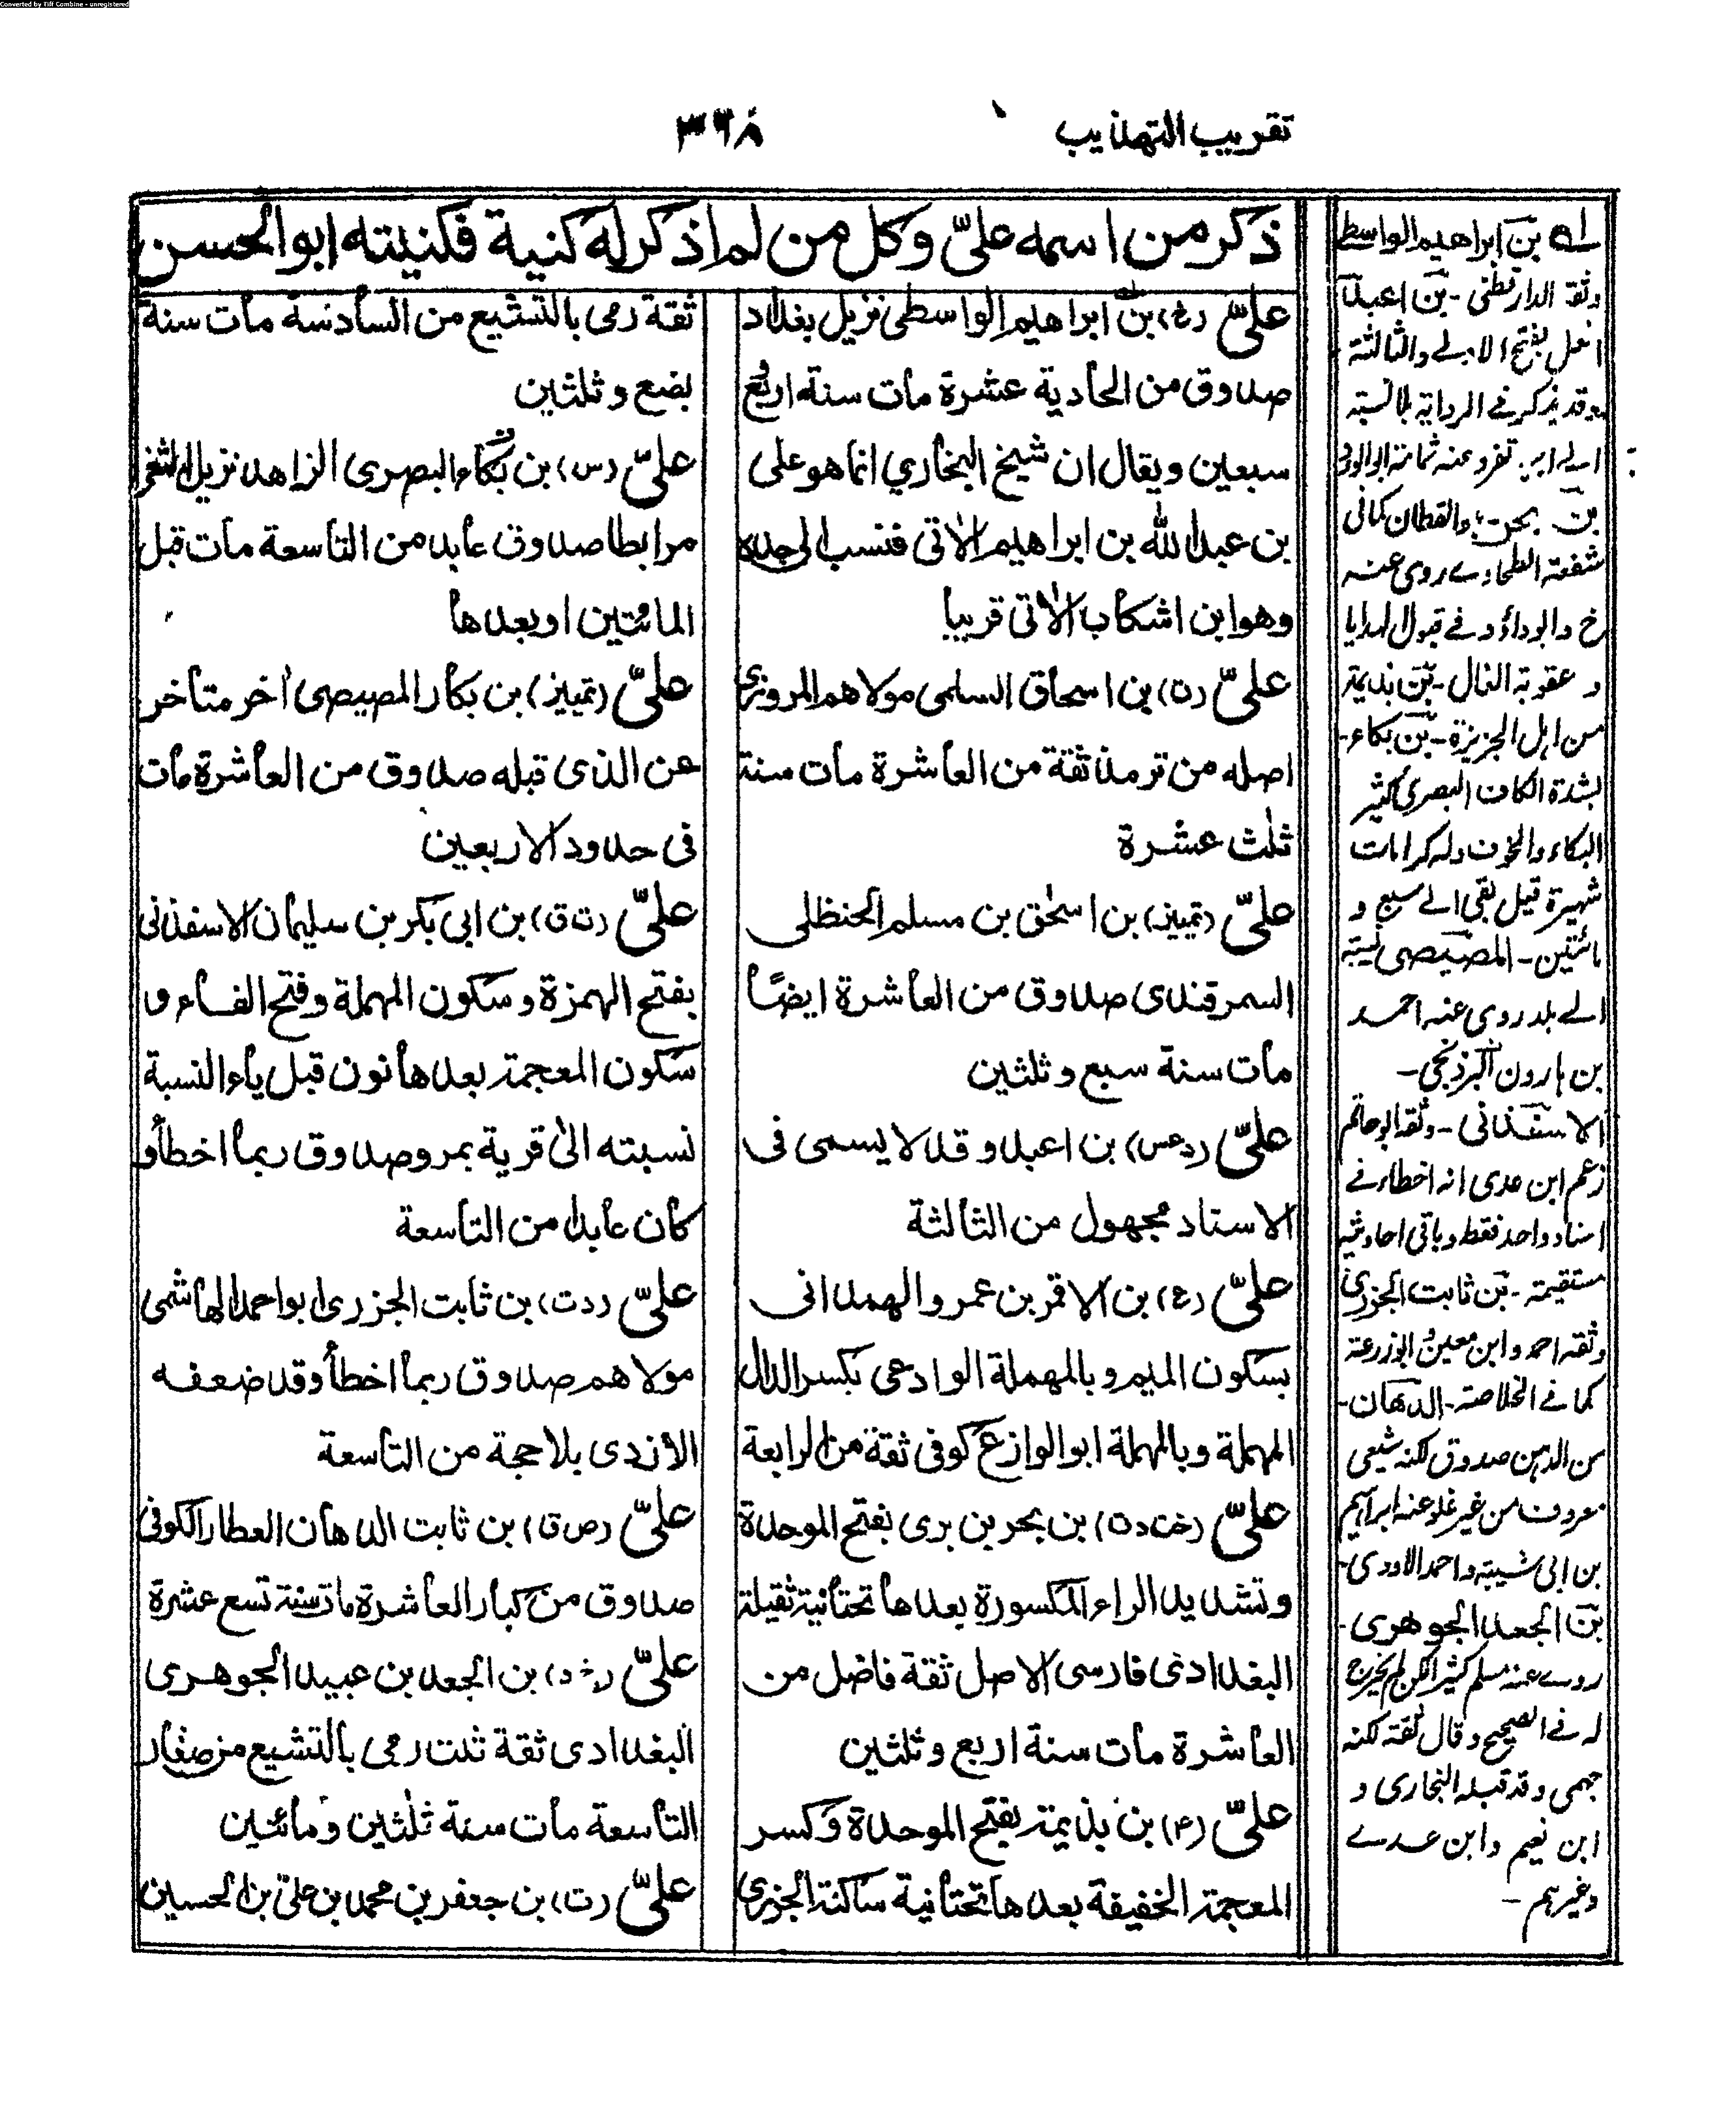 Converted by Tiff Combine - unregistered
تقريب التهذيب
٣٦٨
ذكر من اسمه علىّ وكل من لم اذكر له كنية فكنيته ابوالحسن
علىّ (خ) بن ابراهيم الواسطى نزيل بغداد
صدوق من الحادية عشرة مات سنة اربع
سبعين ويقال ان شيخ البخاري انما هو على
بن عبد الله بن ابراهيم الاتى فنسب الى جده
وهو ابن اشكاب الاتى قريبا
علىّ (ت) بن اسحاق السلمى مولاهم المروزى
اصله من ترمذ ثقة من العاشرة مات سنة
ثلث عشرة
علىّ (تمييز) بن اسحق بن مسلم الحنظلى
السمرقندى صدوق من العاشرة ايضًا
مات سنة سبع وثلثين
علىّ (دعس) بن اعبد وقد لا يسمى فى
الاسناد مجهول من الثالثة
علىّ (ع) بن الاقمر بن عمرو الهمدانى
بسكون الميم وبالمهملة الوادعى بكسر الدال
المهملة وبالمهملة ابو الوازع كوفى ثقة من الرابعة
علىّ (خت د ت) بن بحر بن برى بفتح الموحدة
وتشديد الراء المكسورة بعدها تحتانية ثقيلة
البغدادى فارسى الاصل ثقة فاضل من
العاشرة مات سنة اربع وثلثين
علىّ (٤) بن بذيمة بفتح الموحدة وكسر
المعجمة الخفيفة بعدها تحتانية ساكنة الجزرى
ثقة رمى بالتشيع من السادسة مات سنة
بضع وثلثين
علىّ (س) بن بكاء البصرى الزاهد نزيل الثغر
مرابطا صدوق عابد من التاسعة مات قبل
المائتين او بعدها
علىّ (تمييز) بن بكار المصيصى اخر متأخر
عن الذى قبله صدوق من العاشرة مات
فى حدود الاربعين
علىّ (ت ق) بن ابى بكر بن سليمان الاسفذنى
بفتح الهمزة وسكون المهملة وفتح الفاء و
سكون المعجمة بعدها نون قبل ياء النسبة
نسبته الى قرية بمرو صدوق ربما اخطأ و
كان عابدا من التاسعة
علىّ (د ت) بن ثابت الجزرى ابو احمد الهاشمى
مولاهم صدوق ربما اخطأ وقد ضعفه
الأزدى بلا حجة من التاسعة
علىّ (ص ق) بن ثابت الدهان العطار الكوفى
صدوق من كبار العاشرة مات سنة تسع عشرة
علىّ (خ د) بن الجعد بن عبيد الجوهرى
البغدادى ثقة ثبت رمى بالتشيع من صغار
التاسعة مات سنة ثلثين ومائتين
علىّ (ت) بن جعفر بن محمد بن على بن الحسين
بن ابراهيم الواسط
وثقه الدارقطنى - بن اعبد
افعل بفتح الاولے والثالثة
وقد يذكر فے الرواية بالنسبة
الے ابيه تفرد عنه ثمامة ابو الورد
بن بحر - والقطان كما فى
شفعة الطحاوے روى عنه
خ وابوداؤد فے قبول الهدايا
و عقوبة النال - بن بذيمة
من اهل الجزيرة - بن بكاء -
بشدة الكاف البصرى كثير
البكاء والحزن وله كرامات
شهيرة قيل بقى الے سبع و
مائتين - المصيصى نسبة
الے بلد روى عنه احمد
بن هارون البرذنجى -
الاسفذنانى - وثقه ابوحاتم
زعم ابن عدى انه اخطاء فے
اسناد واحد فقط وباقى احاديثه
مستقيمة - بن ثابت الجزرى
وثقه احمد وابن معين وابوزرعة
كما فے الخلاصة - الدهان -
من الدهن صدوق لكنه شيعى
معروف من غير غلو عنه ابراهيم
بن ابى شيبة واحمد الاودى -
بن الجعد الجوهرى -
روے عنه مسلم كثيرا لكن لم يخرج
له فے الصحيح وقال ثقة لكنه
جهمى وقد قبله البخارى و
ابن نعيم وابن عدے
وغيرهم -